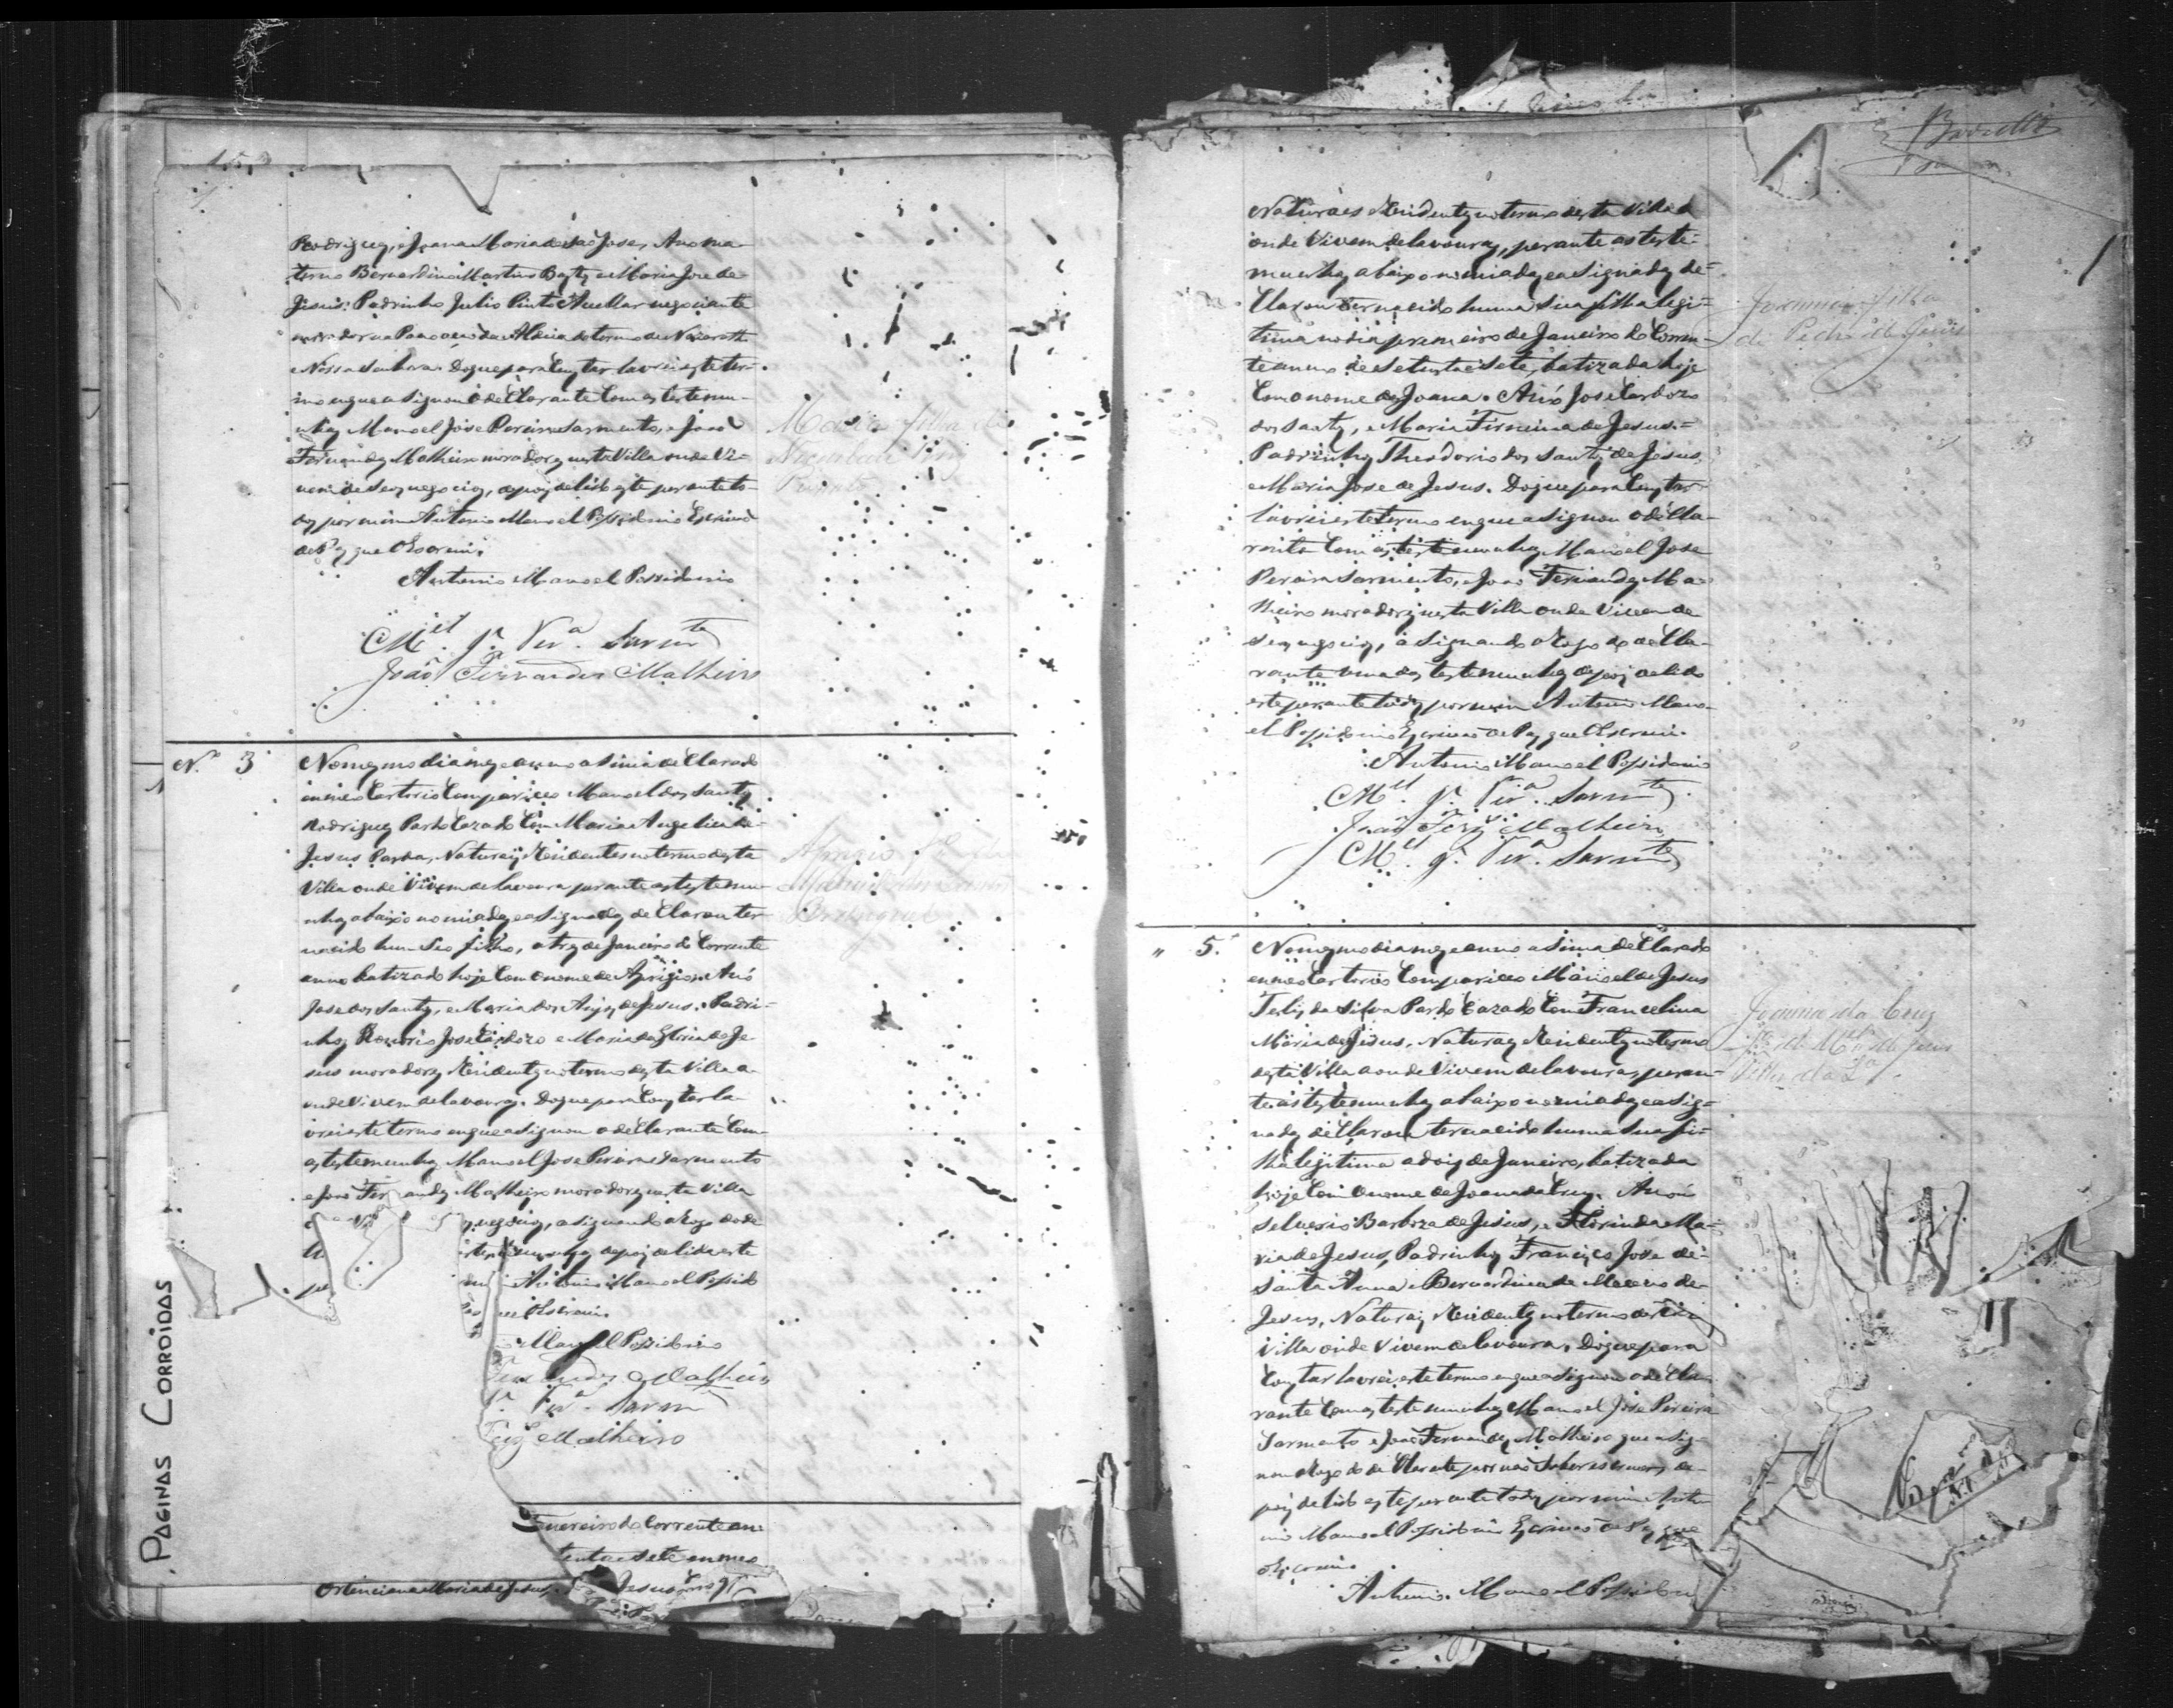 Rodrigues, e Joana Maria de São José, Avo ma-
terno Bernardino Martins Bastos e Maria Jose de
Jesus. Padrinho Julio Pinto negociante
morador na Povoação da Aldeia do termo de Nazareth
Nossa Senhora. Do que para constar lavrei este ter-
mo em que asignou o declarante com as testemu-
nhas Manoel Jose Pereira Sarmento, e João
Fernandes Malheiro moradores nesta Villa onde Vi-
vem de seos negocios, depois de lido este perante to-
dos por mim Antonio Manoel Possidonio Escrivão
de Paz que o Escrevi.
Antonio Manoel Possidonio
Mel. Je. Pera. Sarmto
João Fernandes Malheiro
Maria filha de
N.º 3
No mesmo dia mez e anno asima declarado
em meo Cartorio Compareceo Manoel dos Santos
Rodrigues Pardo Cazado Com Maria Angelica de
Jesus Parda, Naturais Residentes no termo desta
Villa onde Vivem de lavoura perante as testemu-
nhas abaixo nomiadas e asignadas declarou ter
nacido hum Seo filho, a tres de Janeiro do Corrente
anno batizado hoje Com o nome de Aprigio. Avó
Jose dos Santos, e Maria dos Anjos de Jesus. Padri-
nhos Jose Cardozo e Maria da Gloria de Je
sus moradores Residentes no termo desta Villa a-
onde Vivem de lavoura. Do que para Constar la-
vrei este termo em que asignou o declarante Com
as testemunhas Manoel Jose Pereira Sarmento
e João Fer andes Malheiro moradores nesta Villa
negocios, asignando a Rogo do de
testemunhas depois de lido este
Antonio Manoel Possid
Escrevi.
Manoel Possidonio
Fernandes Malheiro
Je. Pera. Sarm
Frz Malheiro
Aprigio
Manoel dos Santos
Rodrigues
Fevereiro do Corrente an
tenta e Sete em meo
Jesus
Ortenciana Maria de Jesus,
PAGINAS CORROÍDAS
Naturaes Residentes no termo desta Villa
onde Vivem de lavoura, perante as teste-
munhas abaixo nomiadas e asignadas de-
clarou ter nacido huma Sua filha legi-
tima no dia premeiro de Janeiro do Corren-
te anno de Setenta e Sete, batizada hoje
Com o nome de Joana. Avó Jose Cardozo
dos Santos, e Maria Firmina de Jesus.
Padrinhos Theodorio dos Santos de Jesus,
e Maria Jose de Jesus. Do que para Constar
lavrei este termo em que asignou o decla-
rante Com as testemunhas Manoel Jose
Pereira Sarmento, e João Fernandes Ma-
lheiro moradores nesta Villa onde Vivem de
seos negocios, asignando a Rogo do decla-
rante uma das testemunhas depois de lido
este perante todos por mim Antonio Mano-
el Possidonio Escrivão de Paz que o Escrevi.
Antonio Manoel Possidonio
Mel. Je. Pera. Sarmto
João Frz Malheiro
Mel. Je. Pera. Sarmto
Joanna filha
de Pedro de Jesus
" 5.
No mesmo dia mez e anno asima declarado
em meo Cartorio Compareceo Manoel de Jesus
Teles da Silva Pardo Cazado Com Francelina
Maria de Jesus, Naturaes Residentes no termo
desta Villa aonde Vivem de lavoura, peran-
te as testemunhas abaixo nomiadas e asig-
nadas declarou ter nacido huma Sua fi-
lha legitima a dois de Janeiro, batizada
hoje Com o nome de Joana da Cruz. Avós
Selverio Barboza de Jesus, e Florinda Ma-
ria de Jesus, Padrinhos Francisco Jose de
Santa Anna e Bernardina de de
Jesus, Naturais Residentes no termo desta
Villa onde Vivem de lavoura, Do que para
Constar lavrei este termo em que asignou o decla-
rante Com as testemunhas Manoel Jose Pereira
Sarmento e João Fernandes Malheiro que asig-
nou a Rogo do declarante por não Saber escrever, de-
pois de lido este perante todos por mim Anto-
nio Manoel Possidonio Escrivão de Paz que
o Escrevi.
Antonio Manoel Possidon
Joanna da Cruz
fa de Mel de Jesus
Telles da Sa